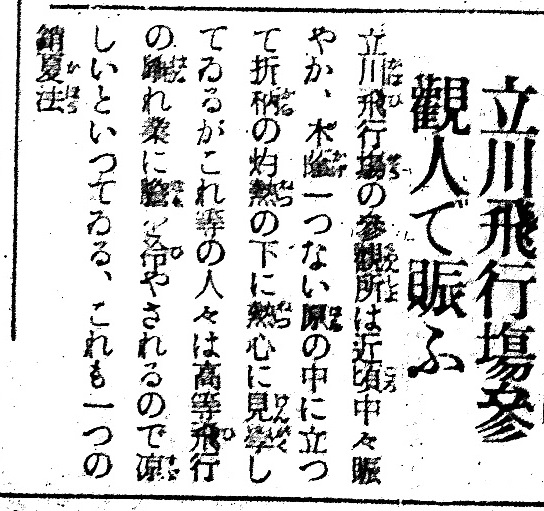 立川飛行塲參
觀人で賑ふ
立川飛行塲の參觀所は近頃中々賑
やか、木蔭一つない原の中に立つ
て折柄の灼熱の下に熱心に見學し
てゐるがこれ等の人々は高等飛行
の離れ業に膽を冷やされるので凉
しいといつてゐる、これも一つの
銷夏法